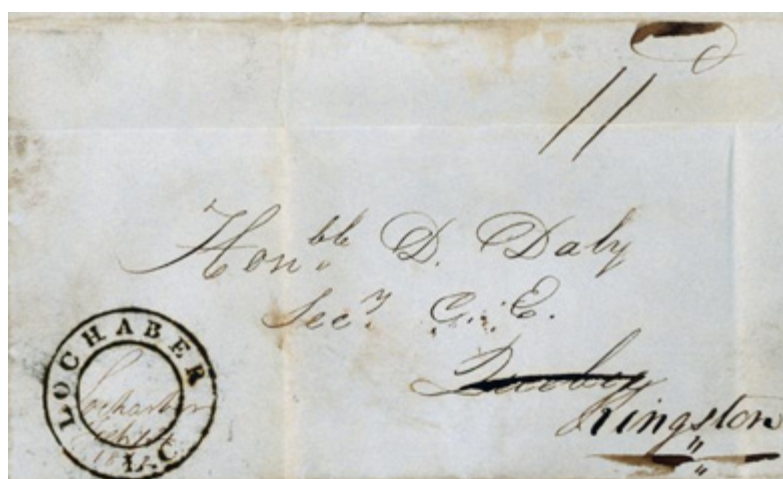 11
Hon.ble D. Daly
Secy. C. E.
Quebec
Kingston
LOCHABER
L.C.
Lochaber